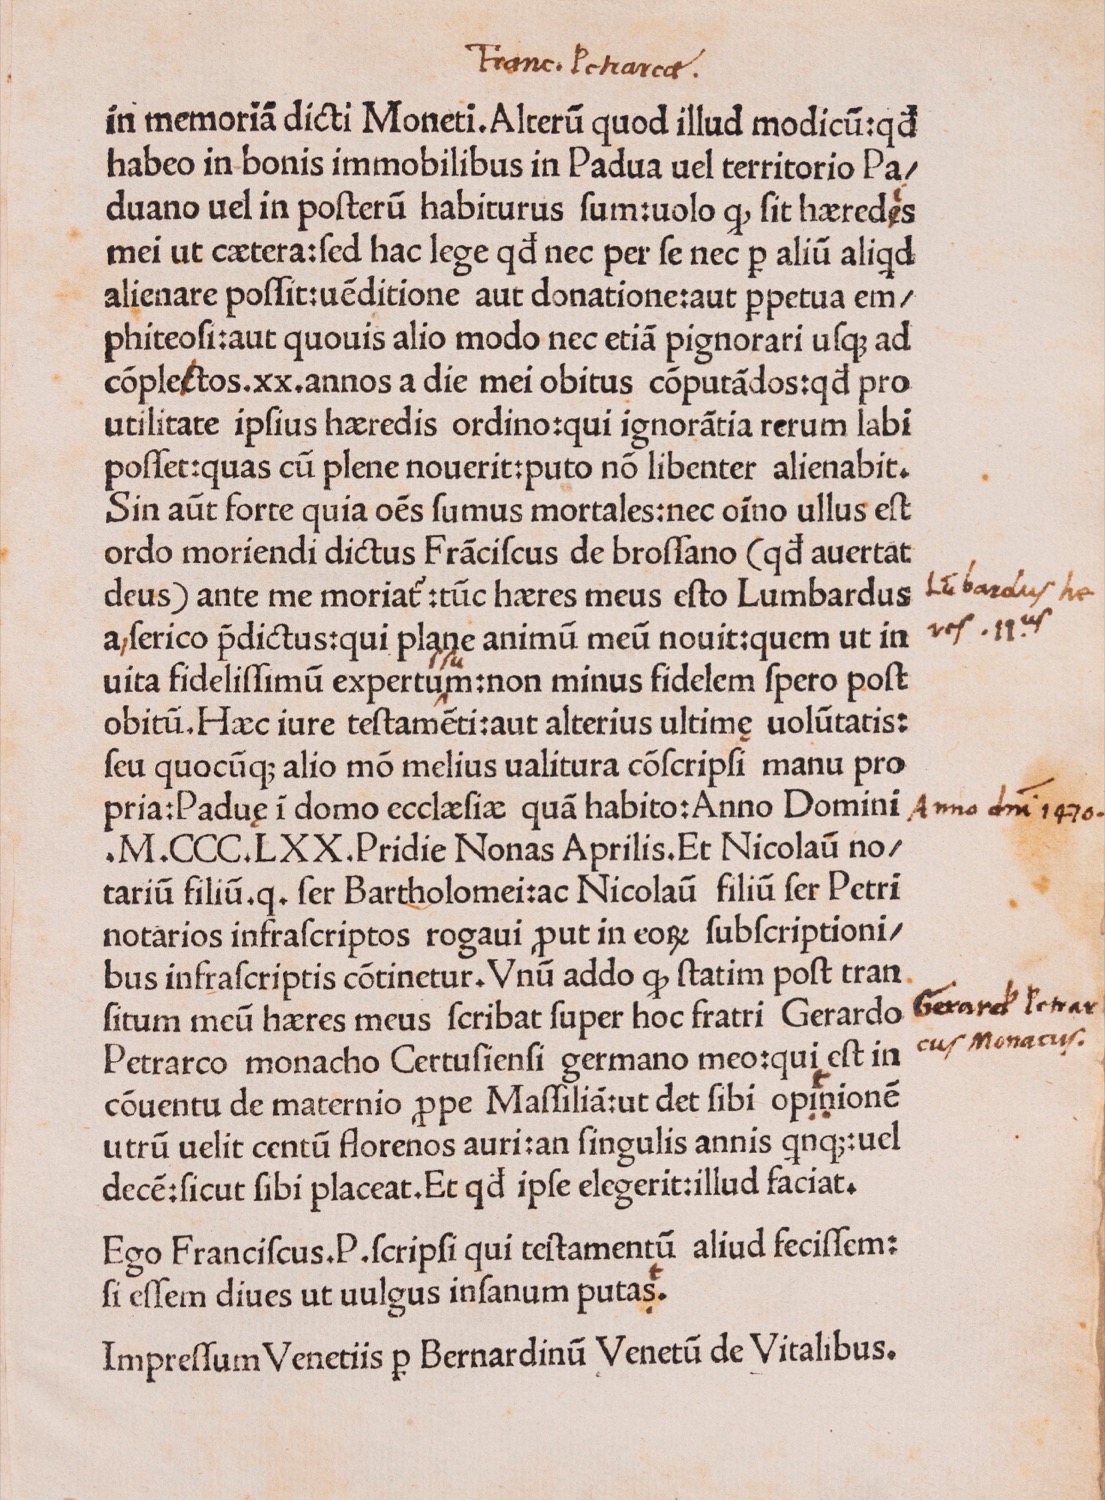 Franc. Petrarcæ.
in memoriā dicti Moneti.Alterū quod illud modicū:qđ
habeo in bonis immobilibus in Padua uel territorio Pa/
duano uel in poſterū habiturus ſum:uolo ꝙ ſit hæredis
mei ut cætera:ſed hac lege qđ nec per ſe nec ꝑ aliū aliqd
alienare poſſit:uēditione aut donatione:aut ꝑpetua em/
phiteoſi:aut quouis alio modo nec etiā pignorari uſqꝫ ad
cōplectos.xx.annos a die mei obitus cōputādos:qđ pro
utilitate ipſius hæredis ordino:qui ignorātia rerum labi
poſſet:quas cū plene nouerit:puto nō libenter alienabit.
Sin aūt forte quia oēs ſumus mortales:nec oīno ullus eſt
ordo moriendi dictus Frāciſcus de broſſano (qđ auertat
deus) ante me moriat᷑:tūc hæres meus eſto Lumbardus
Lūbardus he
a,ſerico p̄dictus:qui plane animū meū nouit:quem ut in
res .IIus
ſſu
uita fideliſſimū expertum:non minus fidelem ſpero poſt
obitū.Hæc iure teſtamēti:aut alterius ultimę uolūtatis:
ſeu quocūqꝫ alio mō melius ualitura cōſcripſi manu pro
pria:Paduę ī domo eccläſiæ quā habito:Anno Domini
Anno dm̄i 1470.
.M.CCC.LXX.Pridie Nonas Aprilis.Et Nicolaū no/
tariū filiū.q. ſer Bartholomei:ac Nicolaū filiū ſer Petri
notarios infraſcriptos rogaui ꝓut in eoꝝ ſubſcriptioni/
bus infraſcriptis cōtinetur.Vnū addo ꝙ ſtatim poſt tran
ſitum meū hæres meus ſcribat ſuper hoc fratri Gerardo
Gerard9 Petrar
Petrarco monacho Certuſienſi germano meo:qui eſt in
cus Monacus.
cōuentu de maternio ꝓpe Maſſiliā:ut det ſibi opinionē
utrū uelit centū florenos auri:an ſingulis annis qnqꝫ:uel
decē:ſicut ſibi placeat.Et qđ ipſe elegerit:illud faciat.
Ego Franciſcus.P.ſcripſi qui teſtamentū aliud feciſſem:
ſi eſſem diues ut uulgus inſanum putas.
Impreſſum Venetiis ꝑ Bernardinū Venetū de Vitalibus.